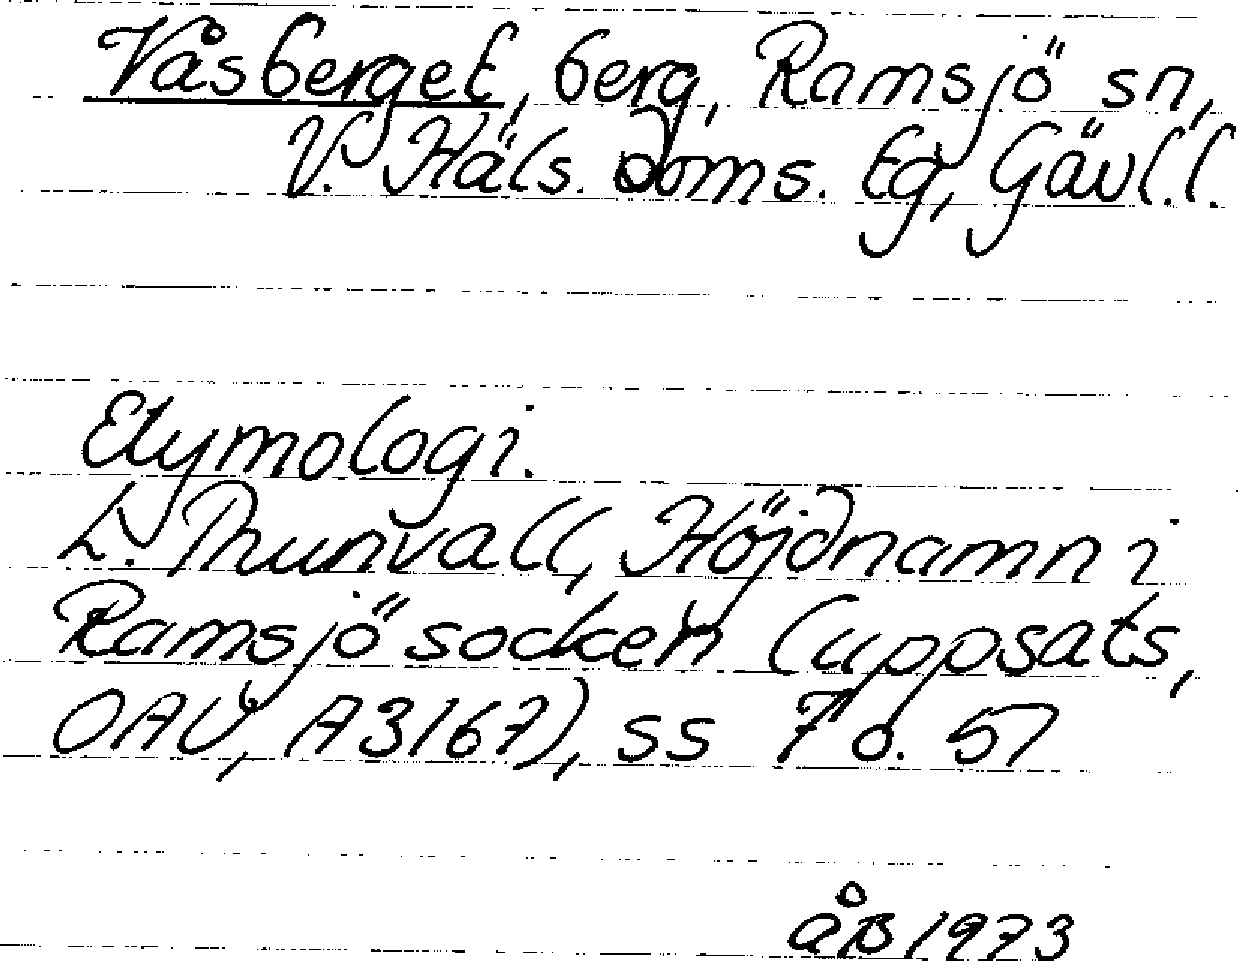 Våsberget, berg, Ramsjö sn,
V. Häls. doms. tg, Gävl.l.
Etymologi.
L. Thunvall, Höjdnamn i
Ramsjö socken (uppsats,
OAU, A3167), ss 7 o. 51
åB 1973